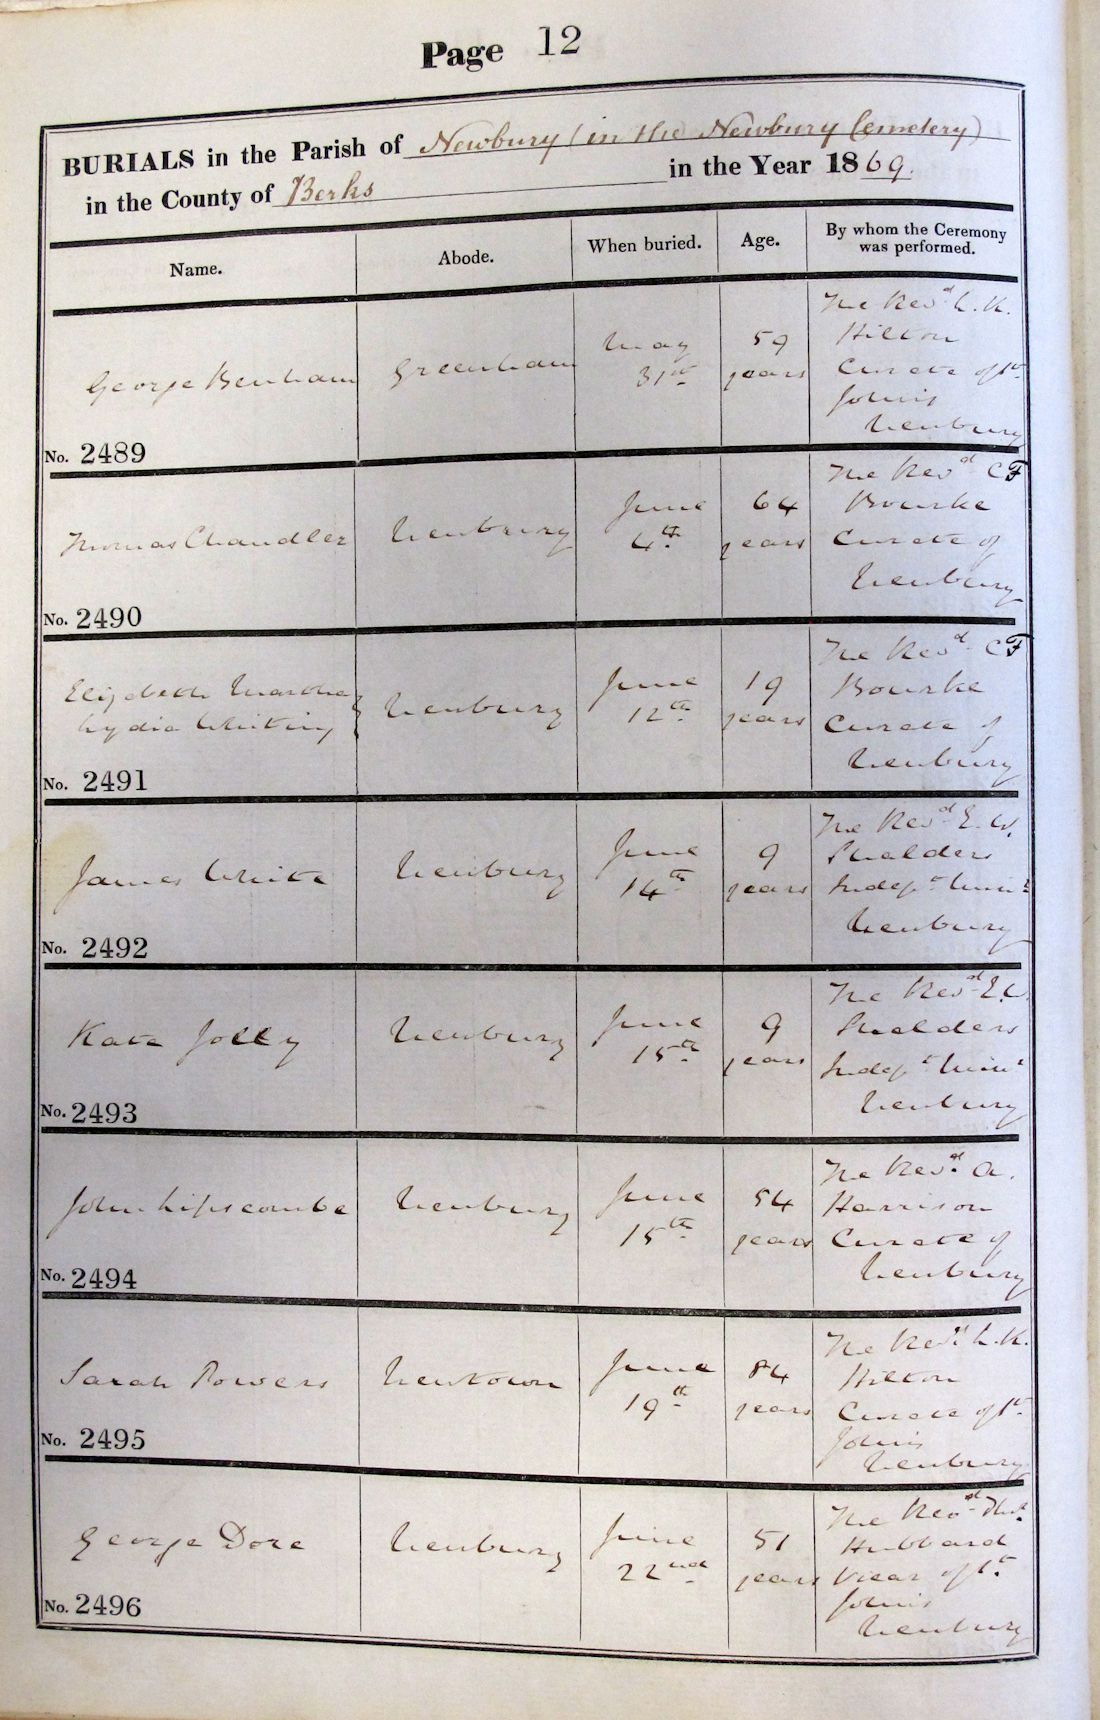 Page 12
BURIALS in the Parish of Newbury (in the Newbury Cemetery)
in the County of Berks in the Year 1869.
Name. Abode. When buried. Age. By whom the Ceremony
was performed.
The Revd L. K.
George Benham Greenham May 59 Hilton
31st years Curate of St
Johns
No. 2489 Newbury
The Revd C F
Thomas Chandler Newbury June 64 Bourke
4th years Curate of
No. 2490 Newbury
The Revd C F
Elizabeth Martha Newbury June 19 Bourke
Lydia Whiting 12th years Curate of
No. 2491 Newbury
The Revd E. W.
James White Newbury June 9 Shalders
14th years Indept Minr
No. 2492 Newbury
The Revd E. W.
Kate Jolly Newbury June 9 Shalders
15th years Indept Minr
No. 2493 Newbury
The Revd. A.
John Lipscombe Newbury June 54 Harrison
15th years Curate of
No. 2494 Newbury
The Revd L. K.
Sarah Powers Newtown June 84 Hilton
19th years Curate of St
Johns
No. 2495 Newbury
The Revd
George Dore Newbury June 51 Hubbard
22nd years Vicar of St.
Johns
No. 2496 Newbury